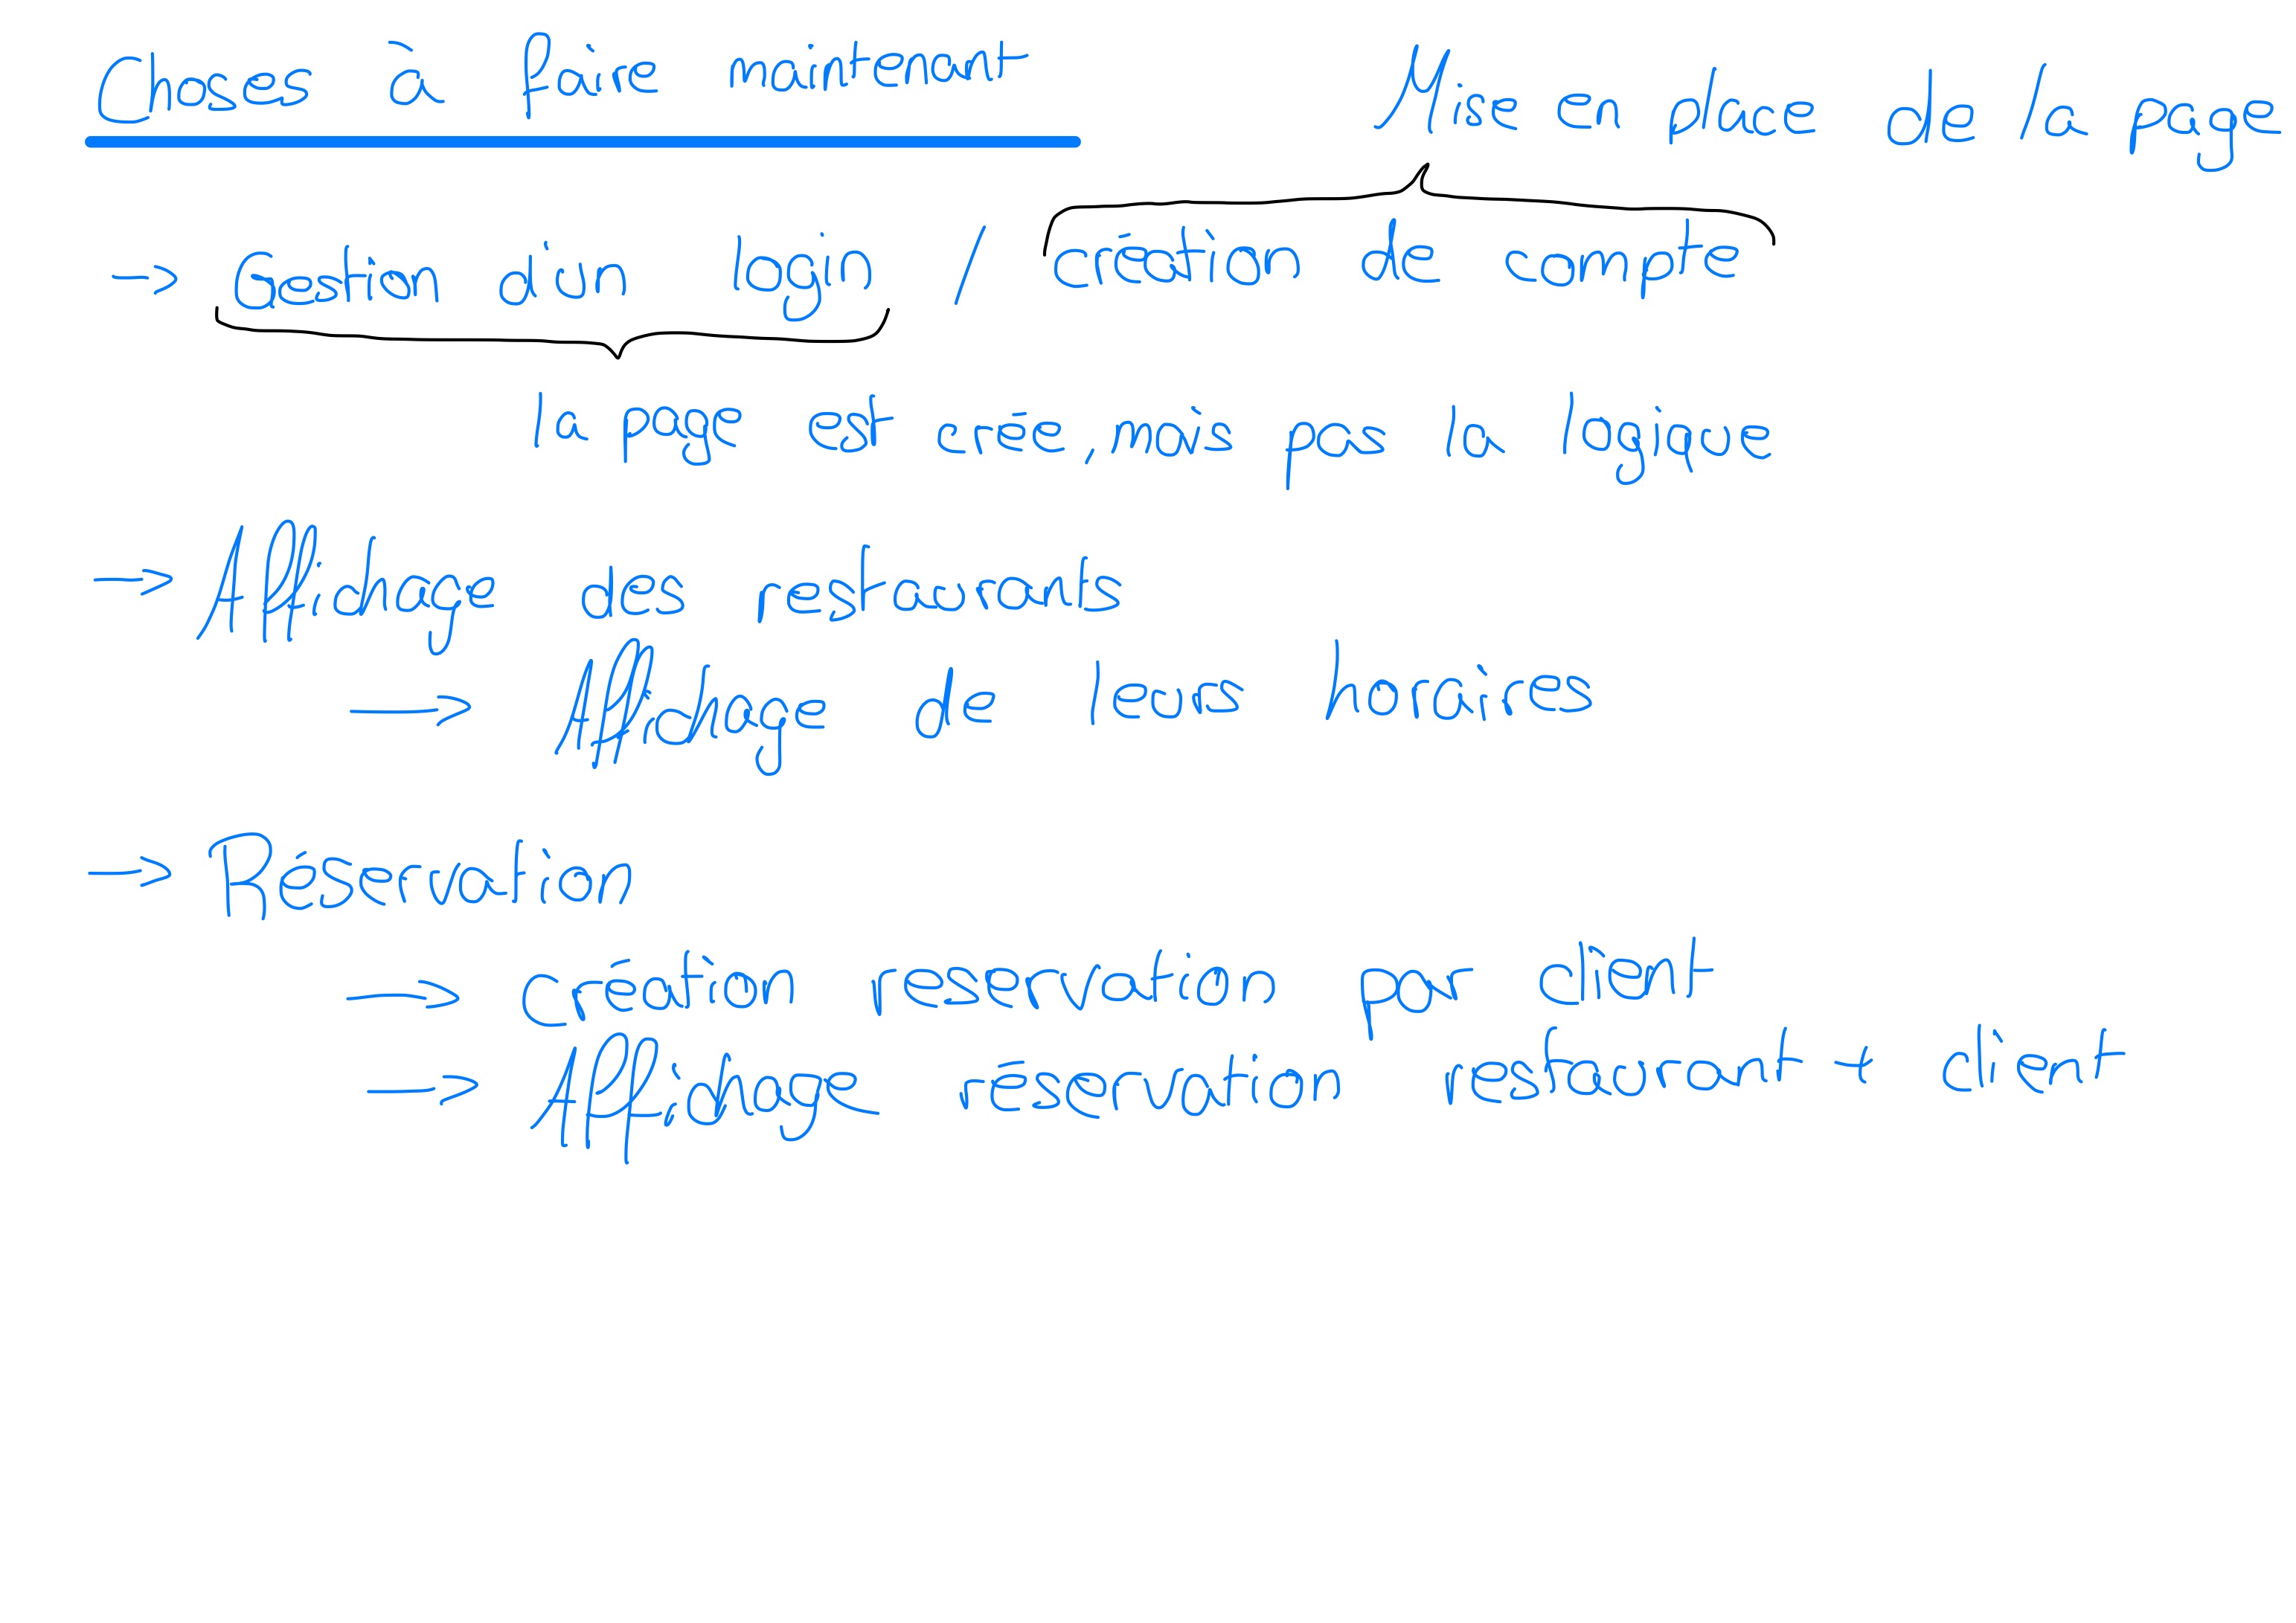 Choses à faire maintenant
Mise en place de la page
→ Gestion d'un login / création de compte
la page est crée, mais pas la logique
→ Affichage des restaurants
→ Affichage de leurs horaires
→ Réservation
→ Création reservation par client
→ Affichage réservation restaurant + client